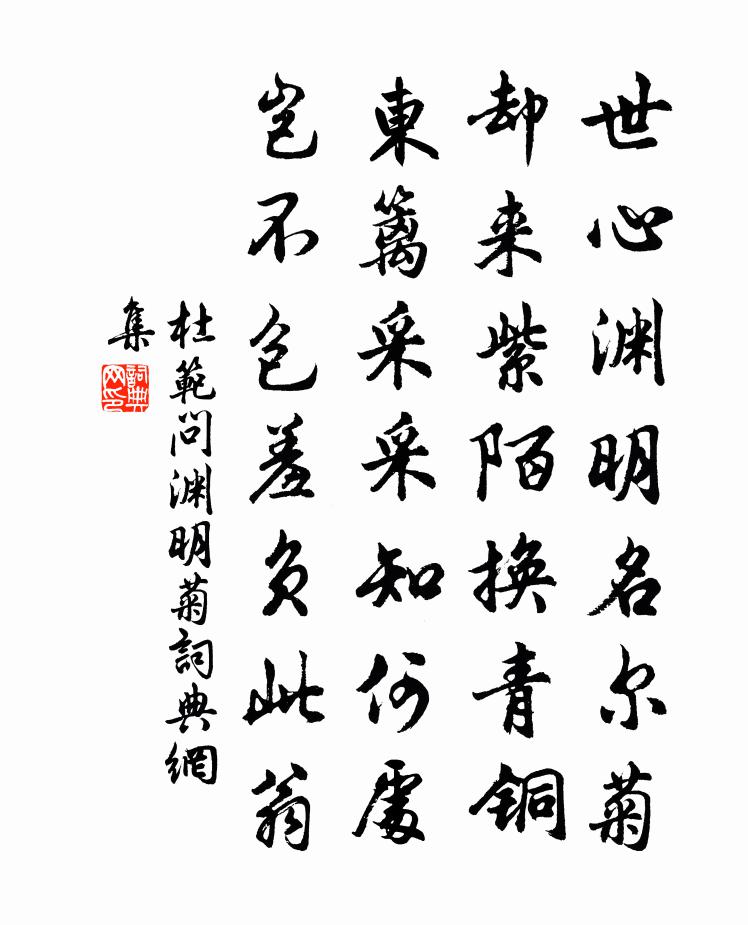 世心渊明名尔菊
却来紫陌换青铜
東籬采采知何處
岂不包羞负此翁
杜範问渊明菊詞典網
集
詞典
网印